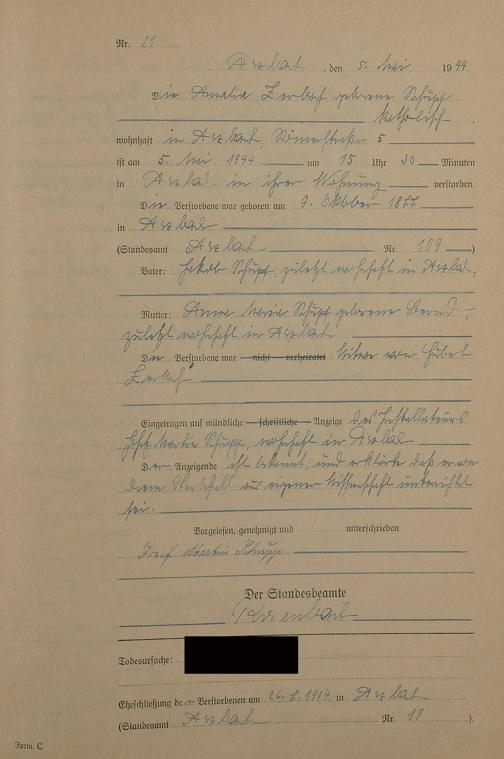 Nr. 21
Arzbach, den 5. Mai 1944
Die Amalia Zerbach geborene Schupp
katholisch,
wohnhaft in Arzbach, Römerstraße 5
ist am 5. Mai 1944 um 15 Uhr 30 Minuten
in Arzbach in ihrer Wohnung verstorben.
Die Verstorbene war geboren am 9. Oktober 1877
in Arzbach
(Standesamt Arzbach Nr. 109)
Vater: Jakob Schupp, zuletzt wohnhaft in Arzbach,
Mutter: Anna Maria Schupp geborene
zuletzt wohnhaft in Arzbach
Die Verstorbene war nicht verheiratet Witwe von Hubert
Zerbach
Eingetragen auf mündliche schriftliche Anzeige des Installateurs
Josef Martin Schupp, wohnhaft in Arzbach
Der Anzeigende ist bekannt, und erklärte daß er von
dem Sterbefall aus eigener Wissenschaft unterrichtet
sei.
Vorgelesen, genehmigt und unterschrieben
Josef Martin Schupp
Der Standesbeamte
Todesursache:
Eheschließung der Verstorbenen am 26.7.1904 in Arzbach
(Standesamt Arzbach Nr. 11).
Form. C